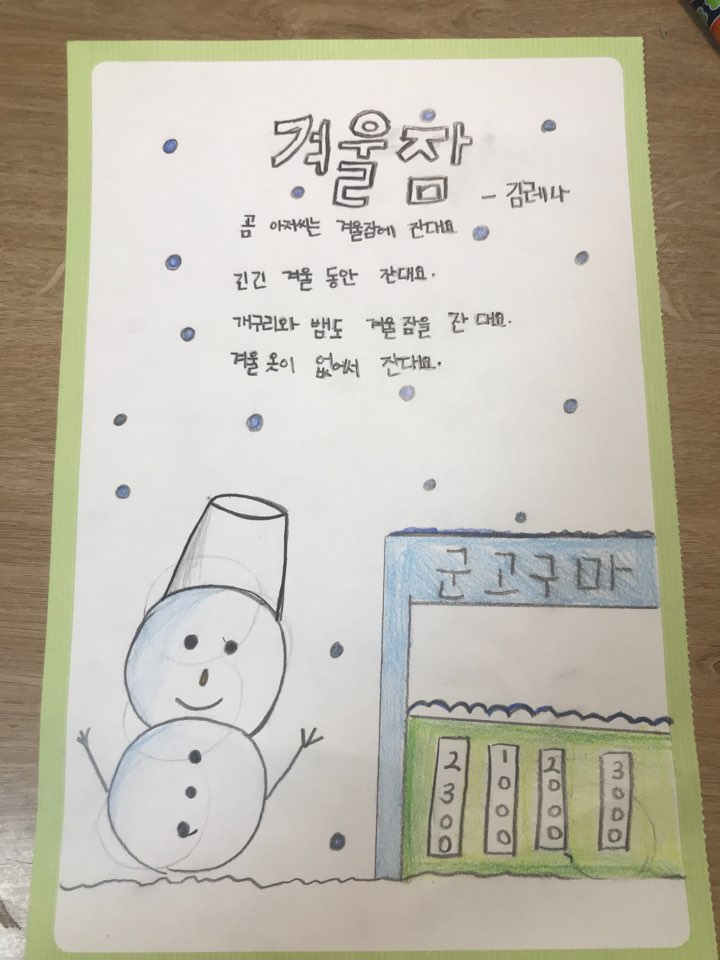 겨울잠
- 김레나
곰 아저씨는 겨울잠에 잔대요
긴긴 겨울 동안 잔대요.
개구리와 뱀도 겨울 잠을 잔 대요.
겨울 옷이 없어서 잔대요.
군고구마
2300
1000
2000
3000